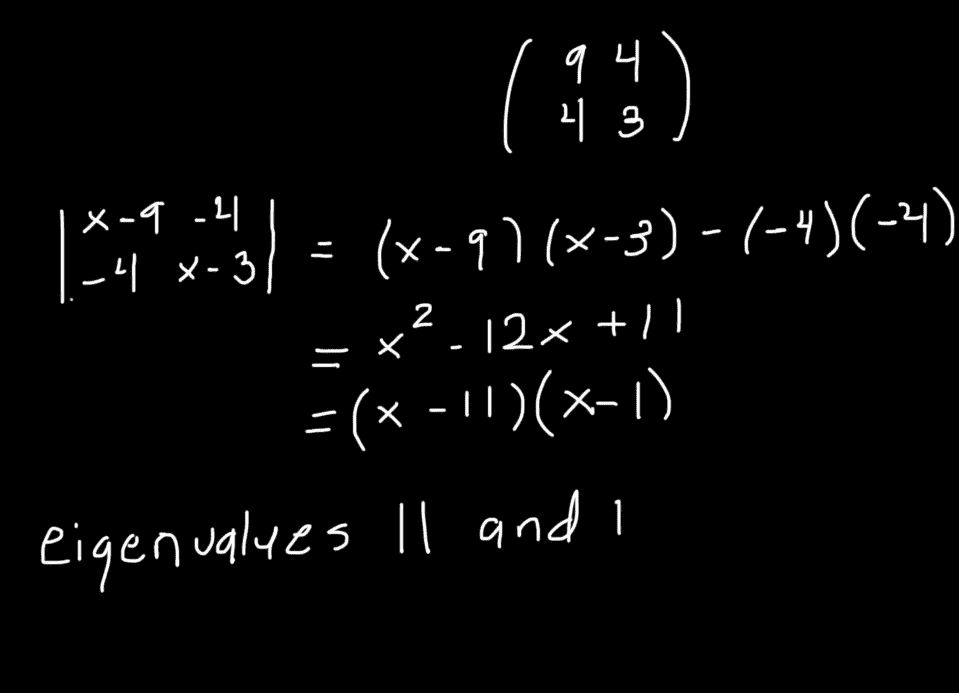 ( 9 4
4 3 )
| x-9 -4
-4 x-3 | = (x-9)(x-3) - (-4)(-4)
= x² - 12x + 11
= (x - 11)(x - 1)
eigenvalues 11 and 1